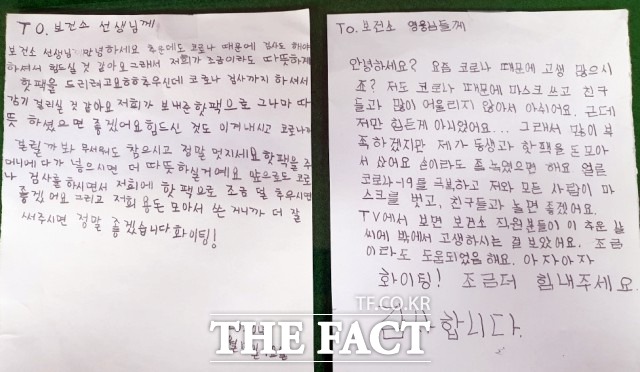 TO. 보건소 선생님께
보건소 선생님 안녕하세요 추운데도 코로나 때문에 검사도 해야
하셔서 힘드실 것 같아요 그래서 저희가 조금이라도 따뜻하게
핫팩을 드리려고요 ㅎㅎㅎ 추우신데 코로나 검사까지 하셔서
감기 걸리실 것 같아요 저희가 보내준 핫팩으로 그나마 따
뜻 하셨으면 좋겠어요 힘드신 것도 이겨내시고 코로나가
걸릴까 봐 무서워도 참으시고 정말 멋지세요 핫팩을 주
머니에다가 넣으시면 더 따뜻하실거예요 앞으로도 코로
나 검사를 하시면서 저희에 핫팩으로 조금 덜 추우시면
좋겠어요 그리고 저희 용돈 모아서 쓴 거니까 더 잘
써주시면 정말 좋겠습니다 화이팅!
To. 보건소 영웅님들께
안녕하세요? 요즘 코로나 때문에 고생 많으시
죠? 저도 코로나 때문에 마스크 쓰고 친구
들과 많이 어울리지 않아서 아쉬어요. 근데
저만 힘든게 아니었어요... 그래서 많이 부
족하겠지만 제가 동생과 핫팩을 돈 모아
서 샀어요 손이라도 좀 녹였으면 해요 얼른
코로나-19를 극복하고 저와 모든 사람이 마
스크를 벗고, 친구들과 놀면 좋겠어요.
TV에서 보면 보건소 직원분들이 이 추운 날
씨에 밖에서 고생하시는 걸 보았어요. 조금
이라도 도움되었음 해요. 아자아자
화이팅! 조금더 힘내주세요
합니다.
TF.CO.KR
THE FACT